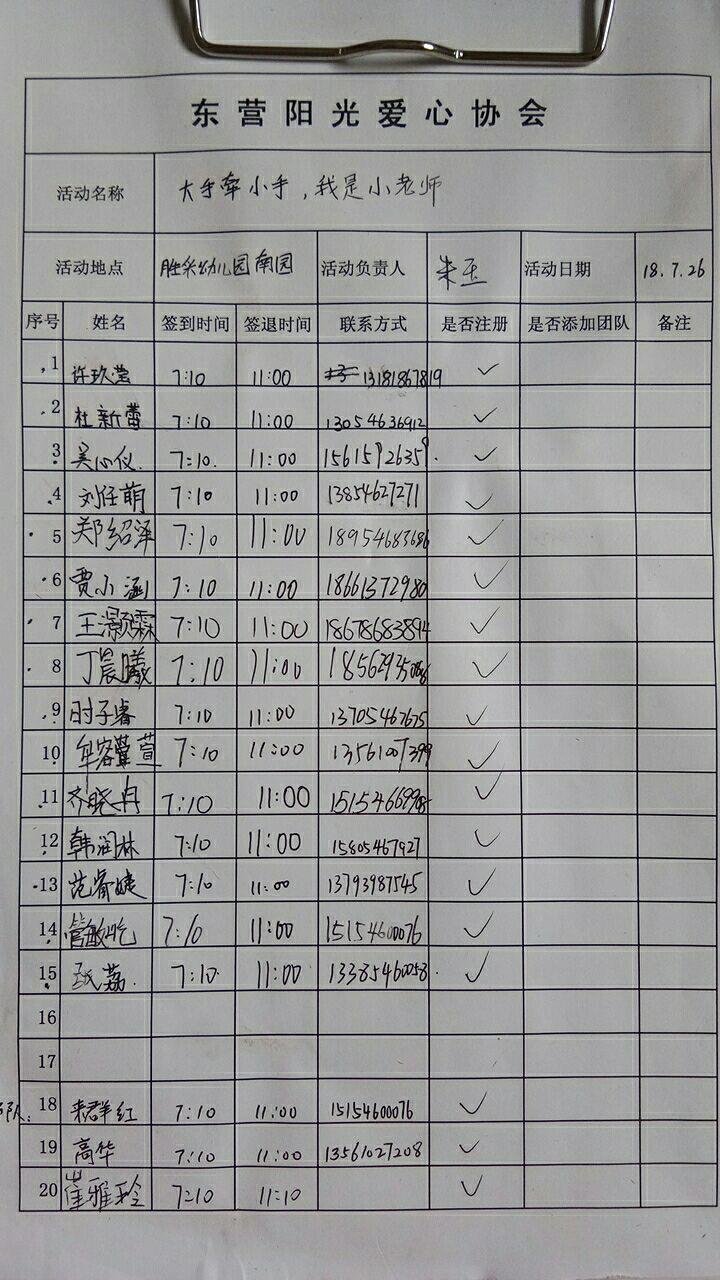 东营阳光爱心协会
活动名称 大手牵小手，我是小老师
活动地点 胜采幼儿园南园 活动负责人 朱玉 活动日期 18.7.26
序号 姓名 签到时间 签退时间 联系方式 是否注册 是否添加团队 备注
1 许玖莹 7:10 11:00 13181867819 ✓
2 杜新蕾 7:10 11:00 13054636912 ✓
3 吴心仪. 7:10. 11:00 15615926359. ✓
4 刘任萌 7:10 11:00 13854627271 ✓
5 郑绍泽 7:10 11:00 18954683686 ✓
6 贾小涵 7:10 11:00 18661372980 ✓
7 王灏霖 7:10 11:00 18678683894 ✓
8 丁晨曦 7:10 11:00 ✓
9 时子睿 7:10 11:00 13705467675 ✓
10 7:10 11:00 13561007399 ✓
11 齐晓冉 7:10 11:00 ✓
12 韩润林 7:10 11:00 15805467927 ✓
13 范睿婕 7:10 11:00 13793987545 ✓
14 7:10 11:00 15154600076 ✓
15 7:10. 11:00 13385460058. ✓
16
17
队: 18 7:10 11:00 15154600076 ✓
19 高华 7:10 11:00 13561027208 ✓
20 崔雅玲 7:10 11:10 ✓